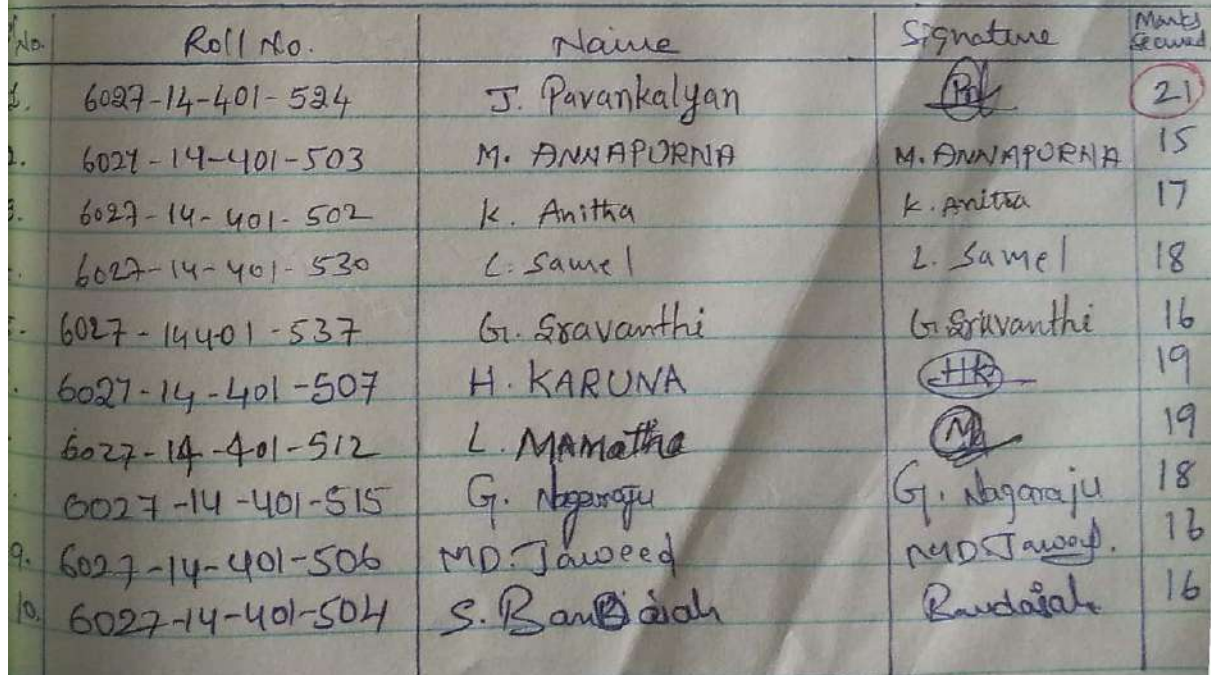 No. Roll No. Name Signature Marks Secured
1. 6027-14-401-524 J. Pavankalyan 21
2. 6027-14-401-503 M. ANNAPURNA M. ANNAPURNA 15
3. 6027-14-401-502 K. Anitha K. Anitha 17
6027-14-401-530 L. Samel L. Samel 18
6027-14401-537 G. Sravanthi G. Sravanthi 16
6027-14-401-507 H. KARUNA HK 19
6027-14-401-512 L. MAMatha 19
6027-14-401-515 G. Nagaraju G. Nagaraju 18
9. 6027-14-401-506 MD. Jaweed MD. Jaweed. 16
10. 6027-14-401-504 S. Bandaiah Bandaiah 16